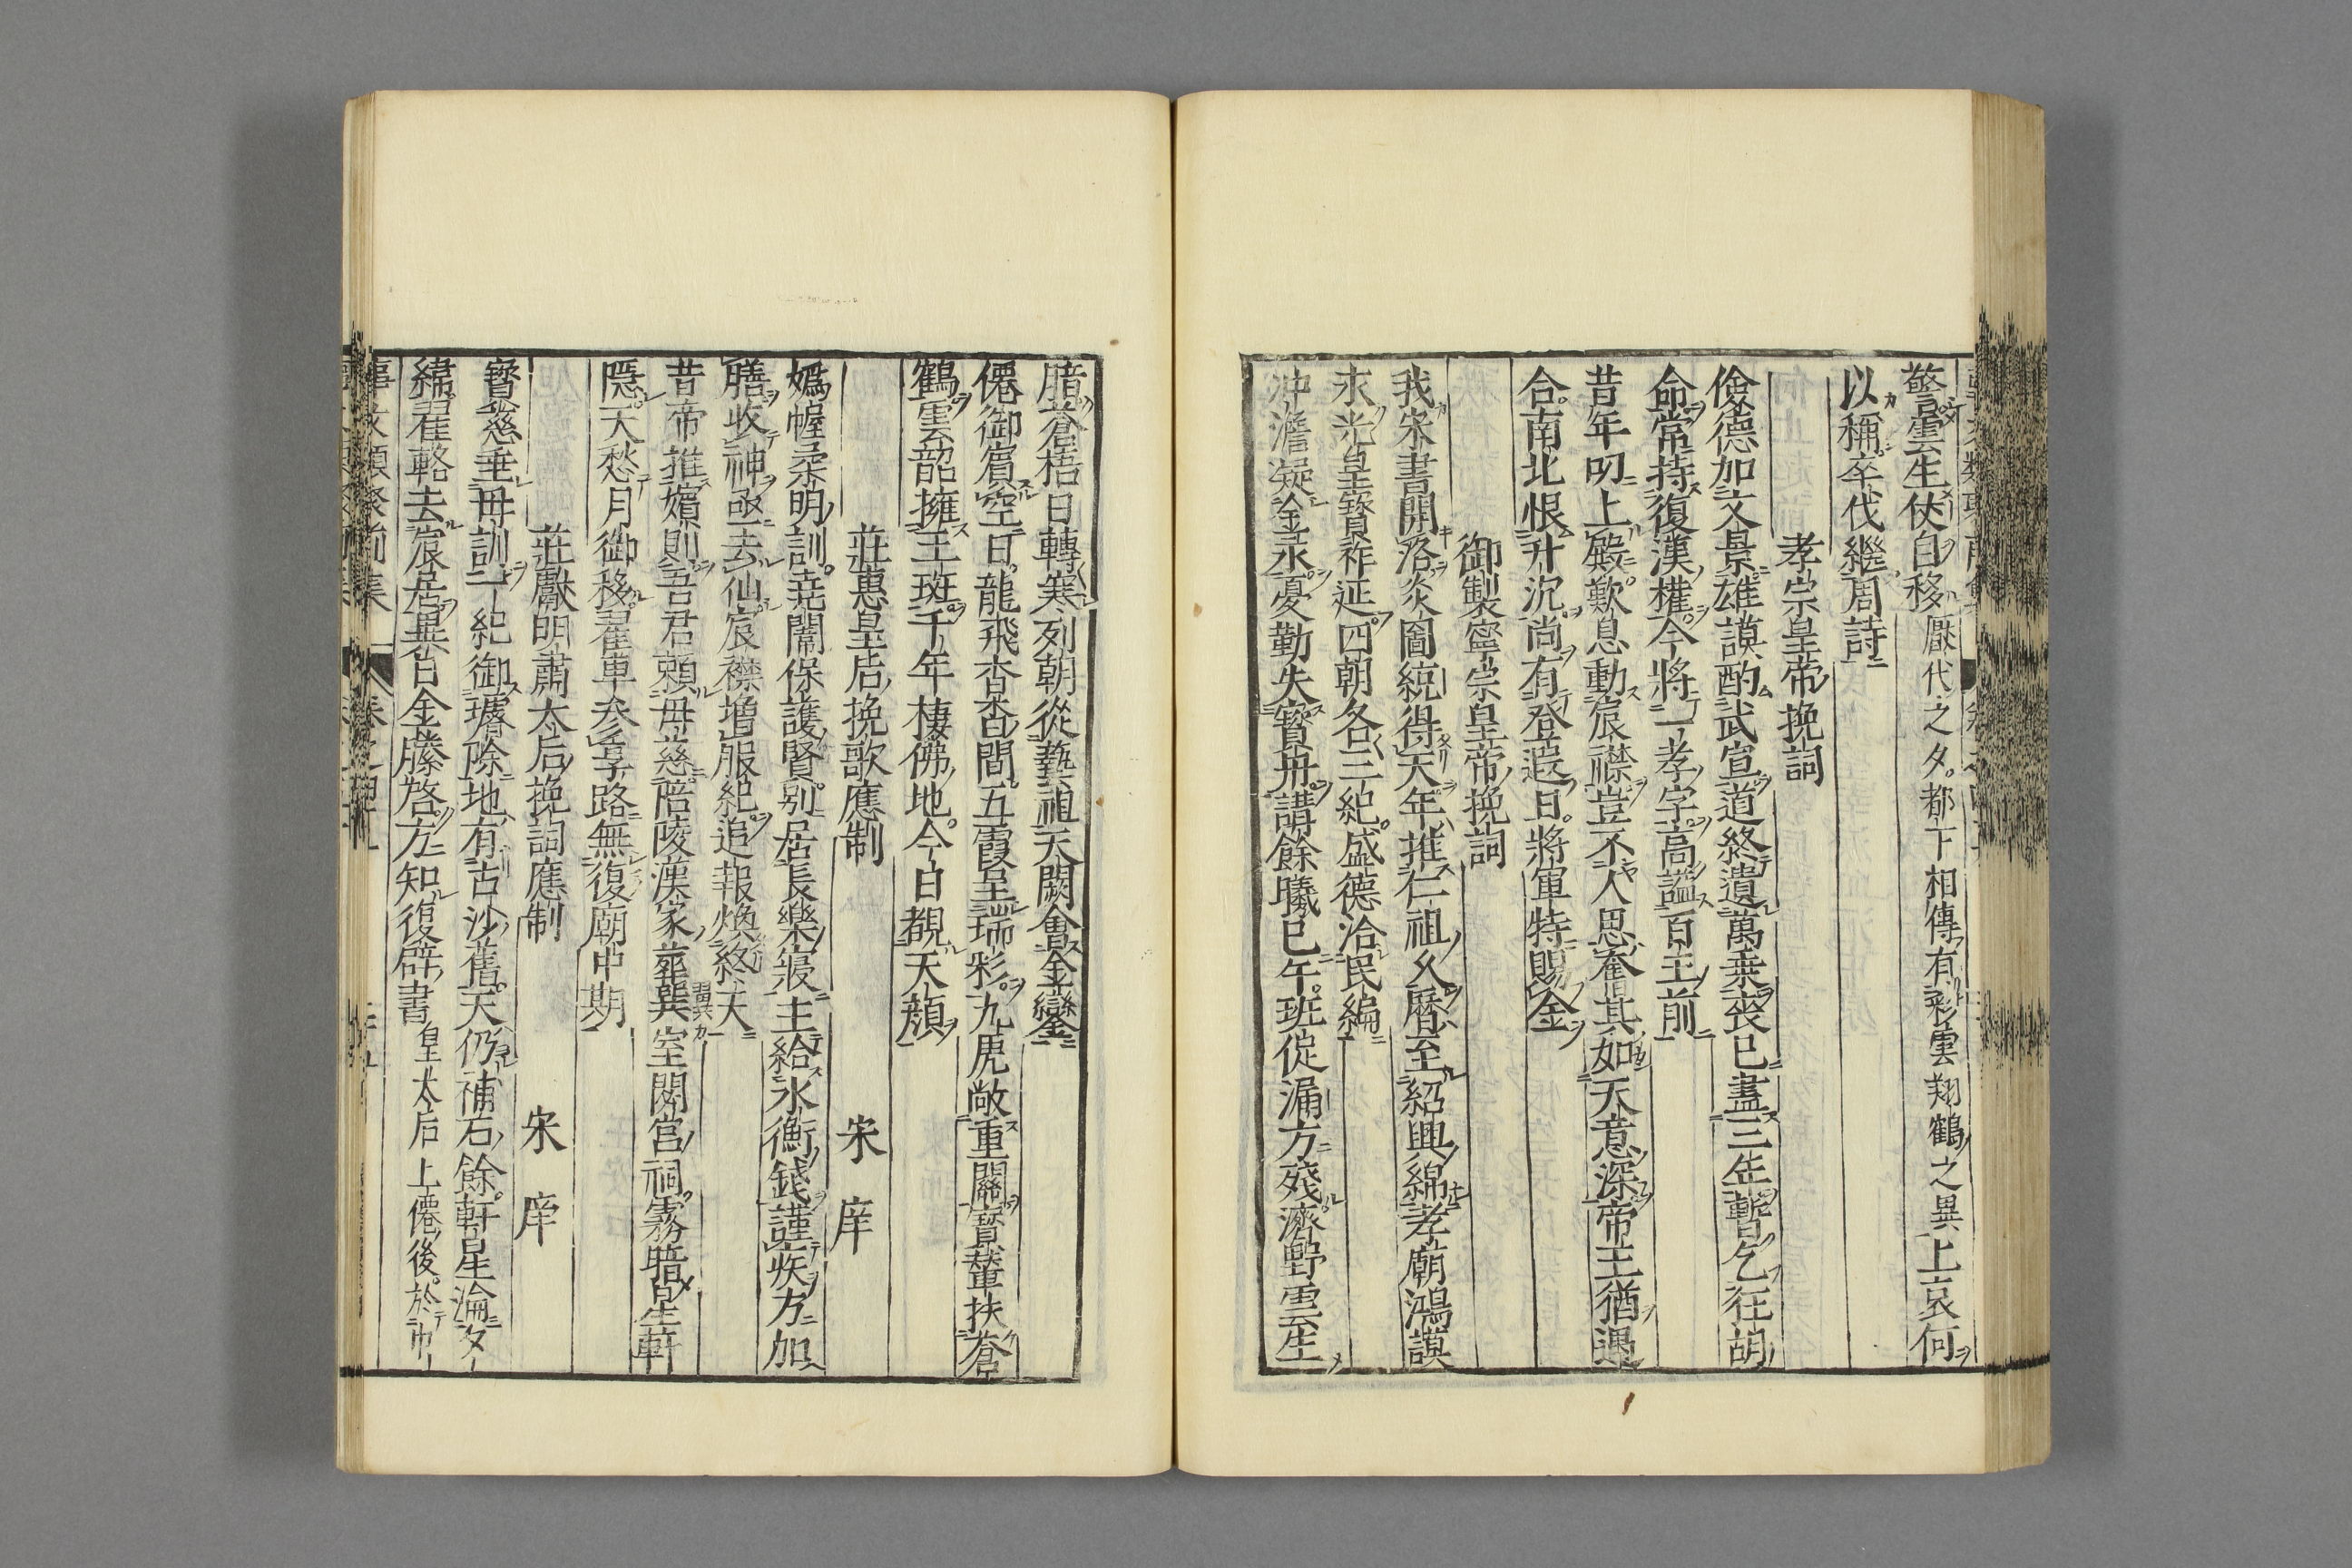 警雲生仗白移厭代之夕都下相傳有彩雲翔鶴之異上哀何
以稱卒代繼周詩
孝宗皇帝挽詞
儉德加文景雄謨酌武宣道終遺萬乗喪已盡三年暫乞狂胡
命常持復漢權今將一孝字高謚百王前
昔年叨上殿歎息動宸襟豈不人思奮其如天意深帝王猶遇
合南北恨升沉尚有登遐日將軍特賜金
御製寧宗皇帝挽詞
我宋書開洛炎圖統得天年推仁祖久曆至紹興綿孝廟鴻謨
求光皇寶祚延四朝各三紀盛德洽民編
沖澹凝金永憂勤失寳丹講餘曦已午班促漏方殘濟野雲生
暗蒼梧日轉寒列朝從藝祖天闕會金鑾
僊御賓空日龍飛杳杳間五霞呈瑞彩九虎敞重關寳輦扶蒼
鶴雲韶擁玉班千年棲佛地今日覩天顔
莊惠皇后挽歌應制 宋庠
媯幄柔明訓堯闈保護賢别居長樂寢主給水衡錢謹疾方加
膳收神亟去仙宸襟増服紀追報煥終天
昔帝推嬪則吾君頼母慈陪陵漢家葬巽翼カ室閟宮祠霧暗星軒
隱天愁月御移翟車參享路無復廟中期
莊獻明肅太后挽詞應制 宋庠
寳慈垂母訓一紀御璿除地有古沙舊天仍補石餘軒星淪夕
緯翟輅去宸居異日金縢啓方知復辟書皇太后上僊後於巾
事文類聚前集 卷之